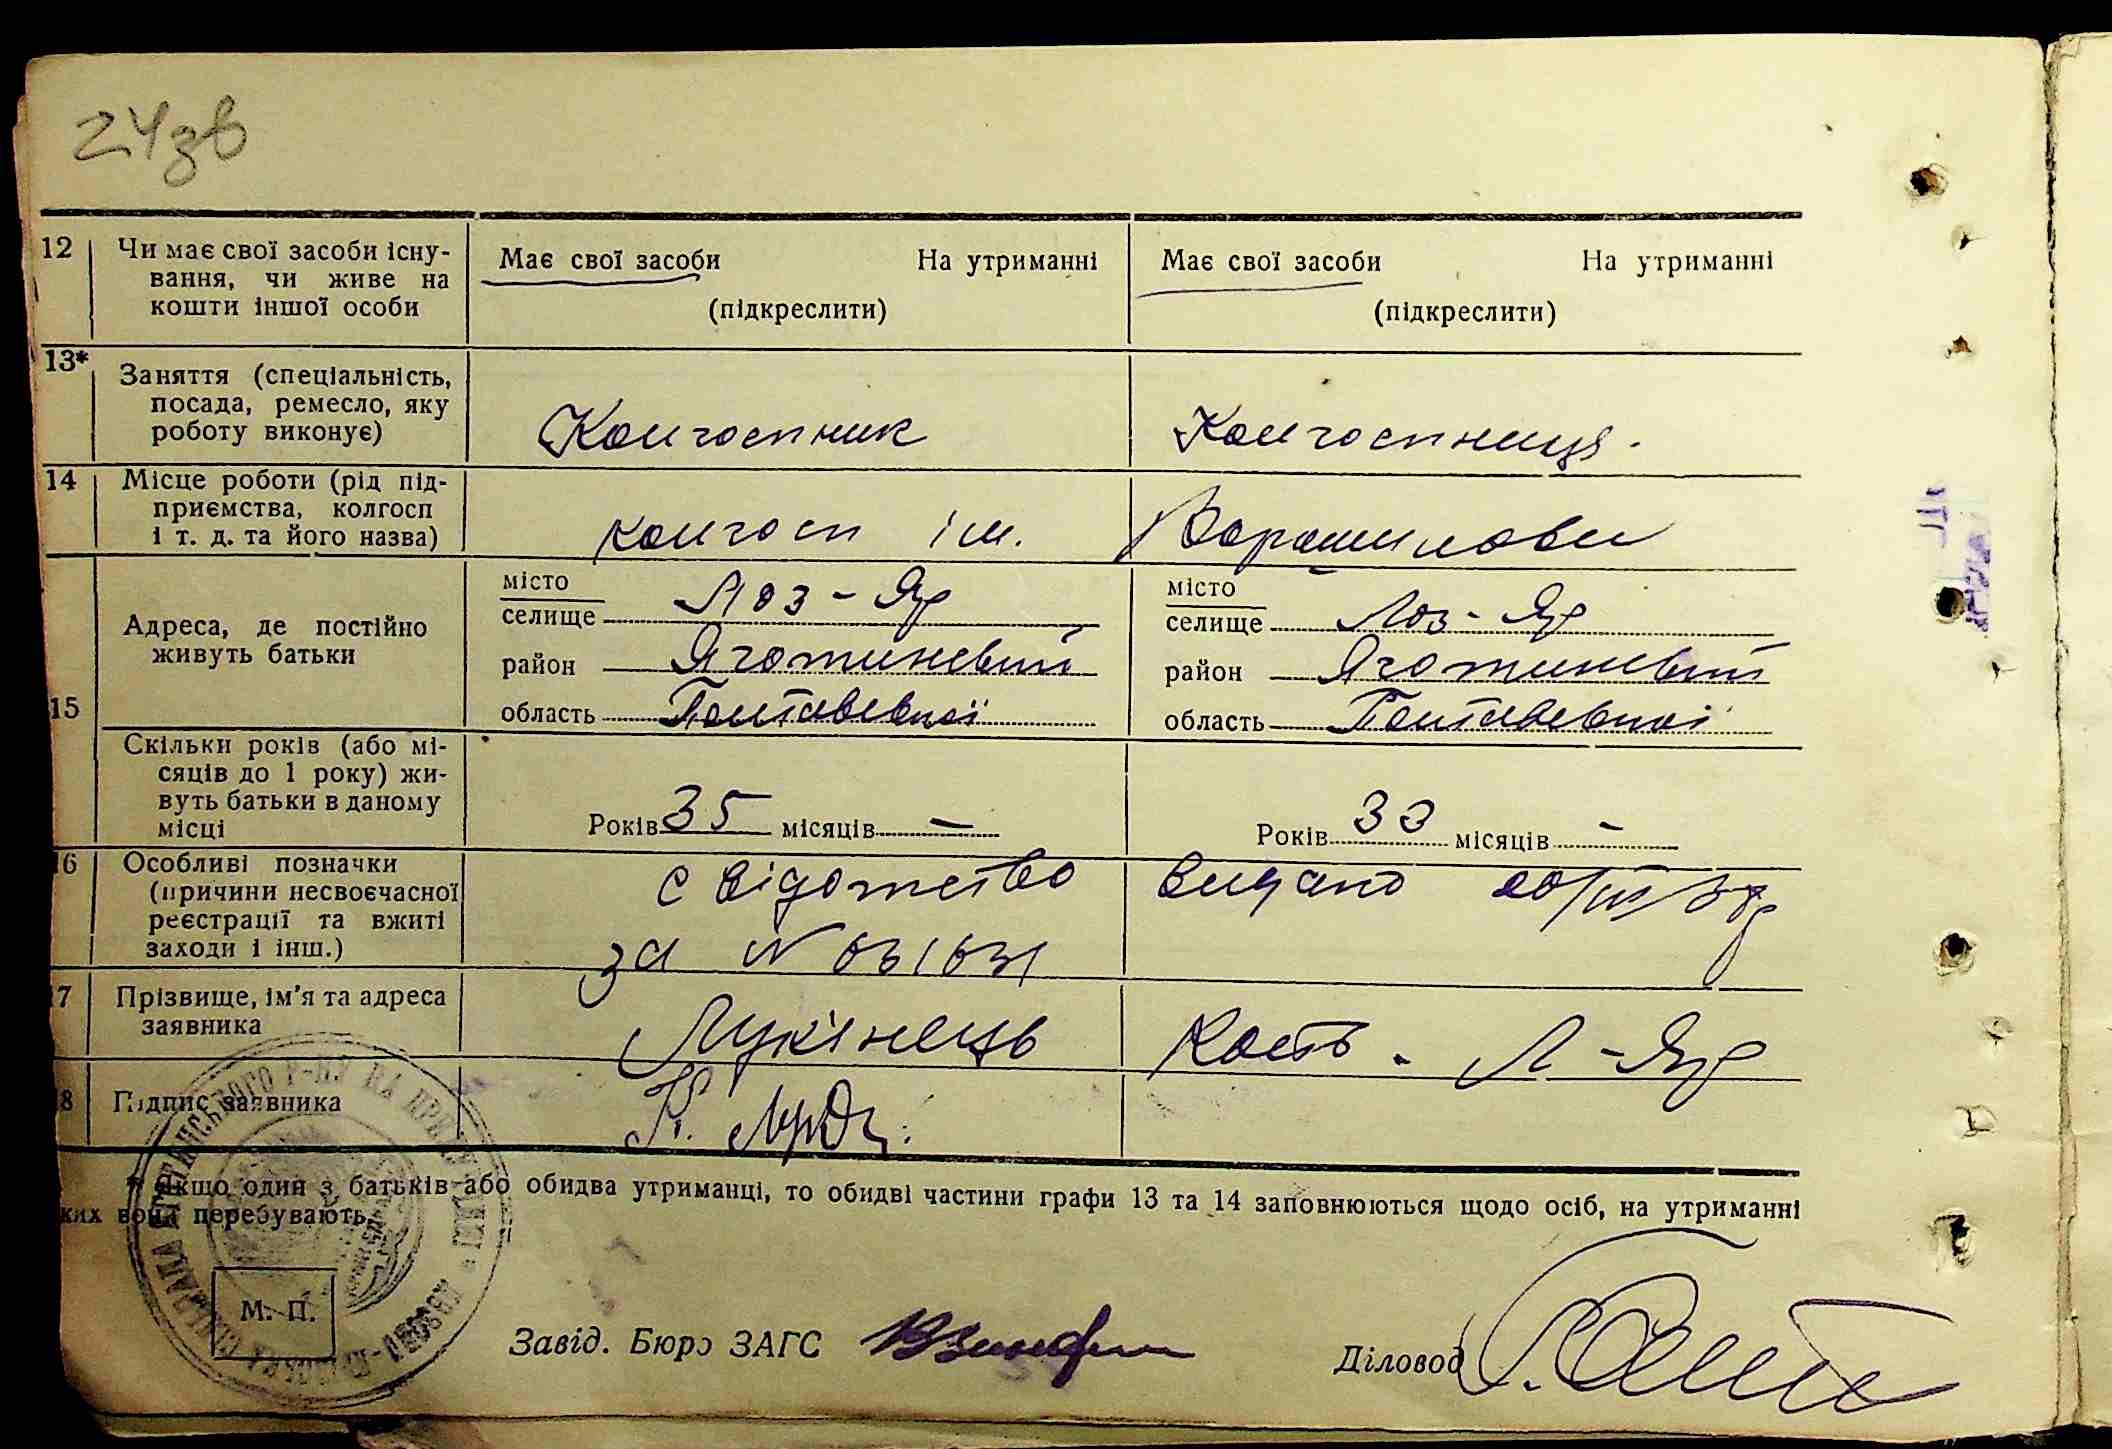 24зв
12 Чи має свої засоби існу-
вання, чи живе на
кошти іншої особи
Має свої засоби На утриманні
(підкреслити)
Має свої засоби На утриманні
(підкреслити)
13* Заняття (спеціальність,
посада, ремесло, яку
роботу виконує)
Колгоспник
Колгоспниця.
14 Місце роботи (рід під-
приємства, колгосп
і т. д. та його назва)
колгосп ім. Ворошилова
15 Адреса, де постійно
живуть батьки
місто
селище Лоз-Яр
район Яготинський
область Полтавської
місто
селище Лоз-Яр
район Яготинський
область Полтавської
Скільки років (або мі-
сяців до 1 року) жи-
вуть батьки в даному
місці
Років 35 місяців —
Років 33 місяців —
6 Особливі позначки
(причини несвоєчасної
реєстрації та вжиті
заходи і інш.)
свідотство видано 20/III/38р
за N 031631
7 Прізвище, ім'я та адреса
заявника
Лук'янець Кость. Л-Яр
8 Підпис заявника
К.
* Якщо один з батьків або обидва утриманці, то обидві частини графи 13 та 14 заповнюються щодо осіб, на утриманні
ких вони перебувають.
М. П.
Завід. Бюро ЗАГС
Діловод